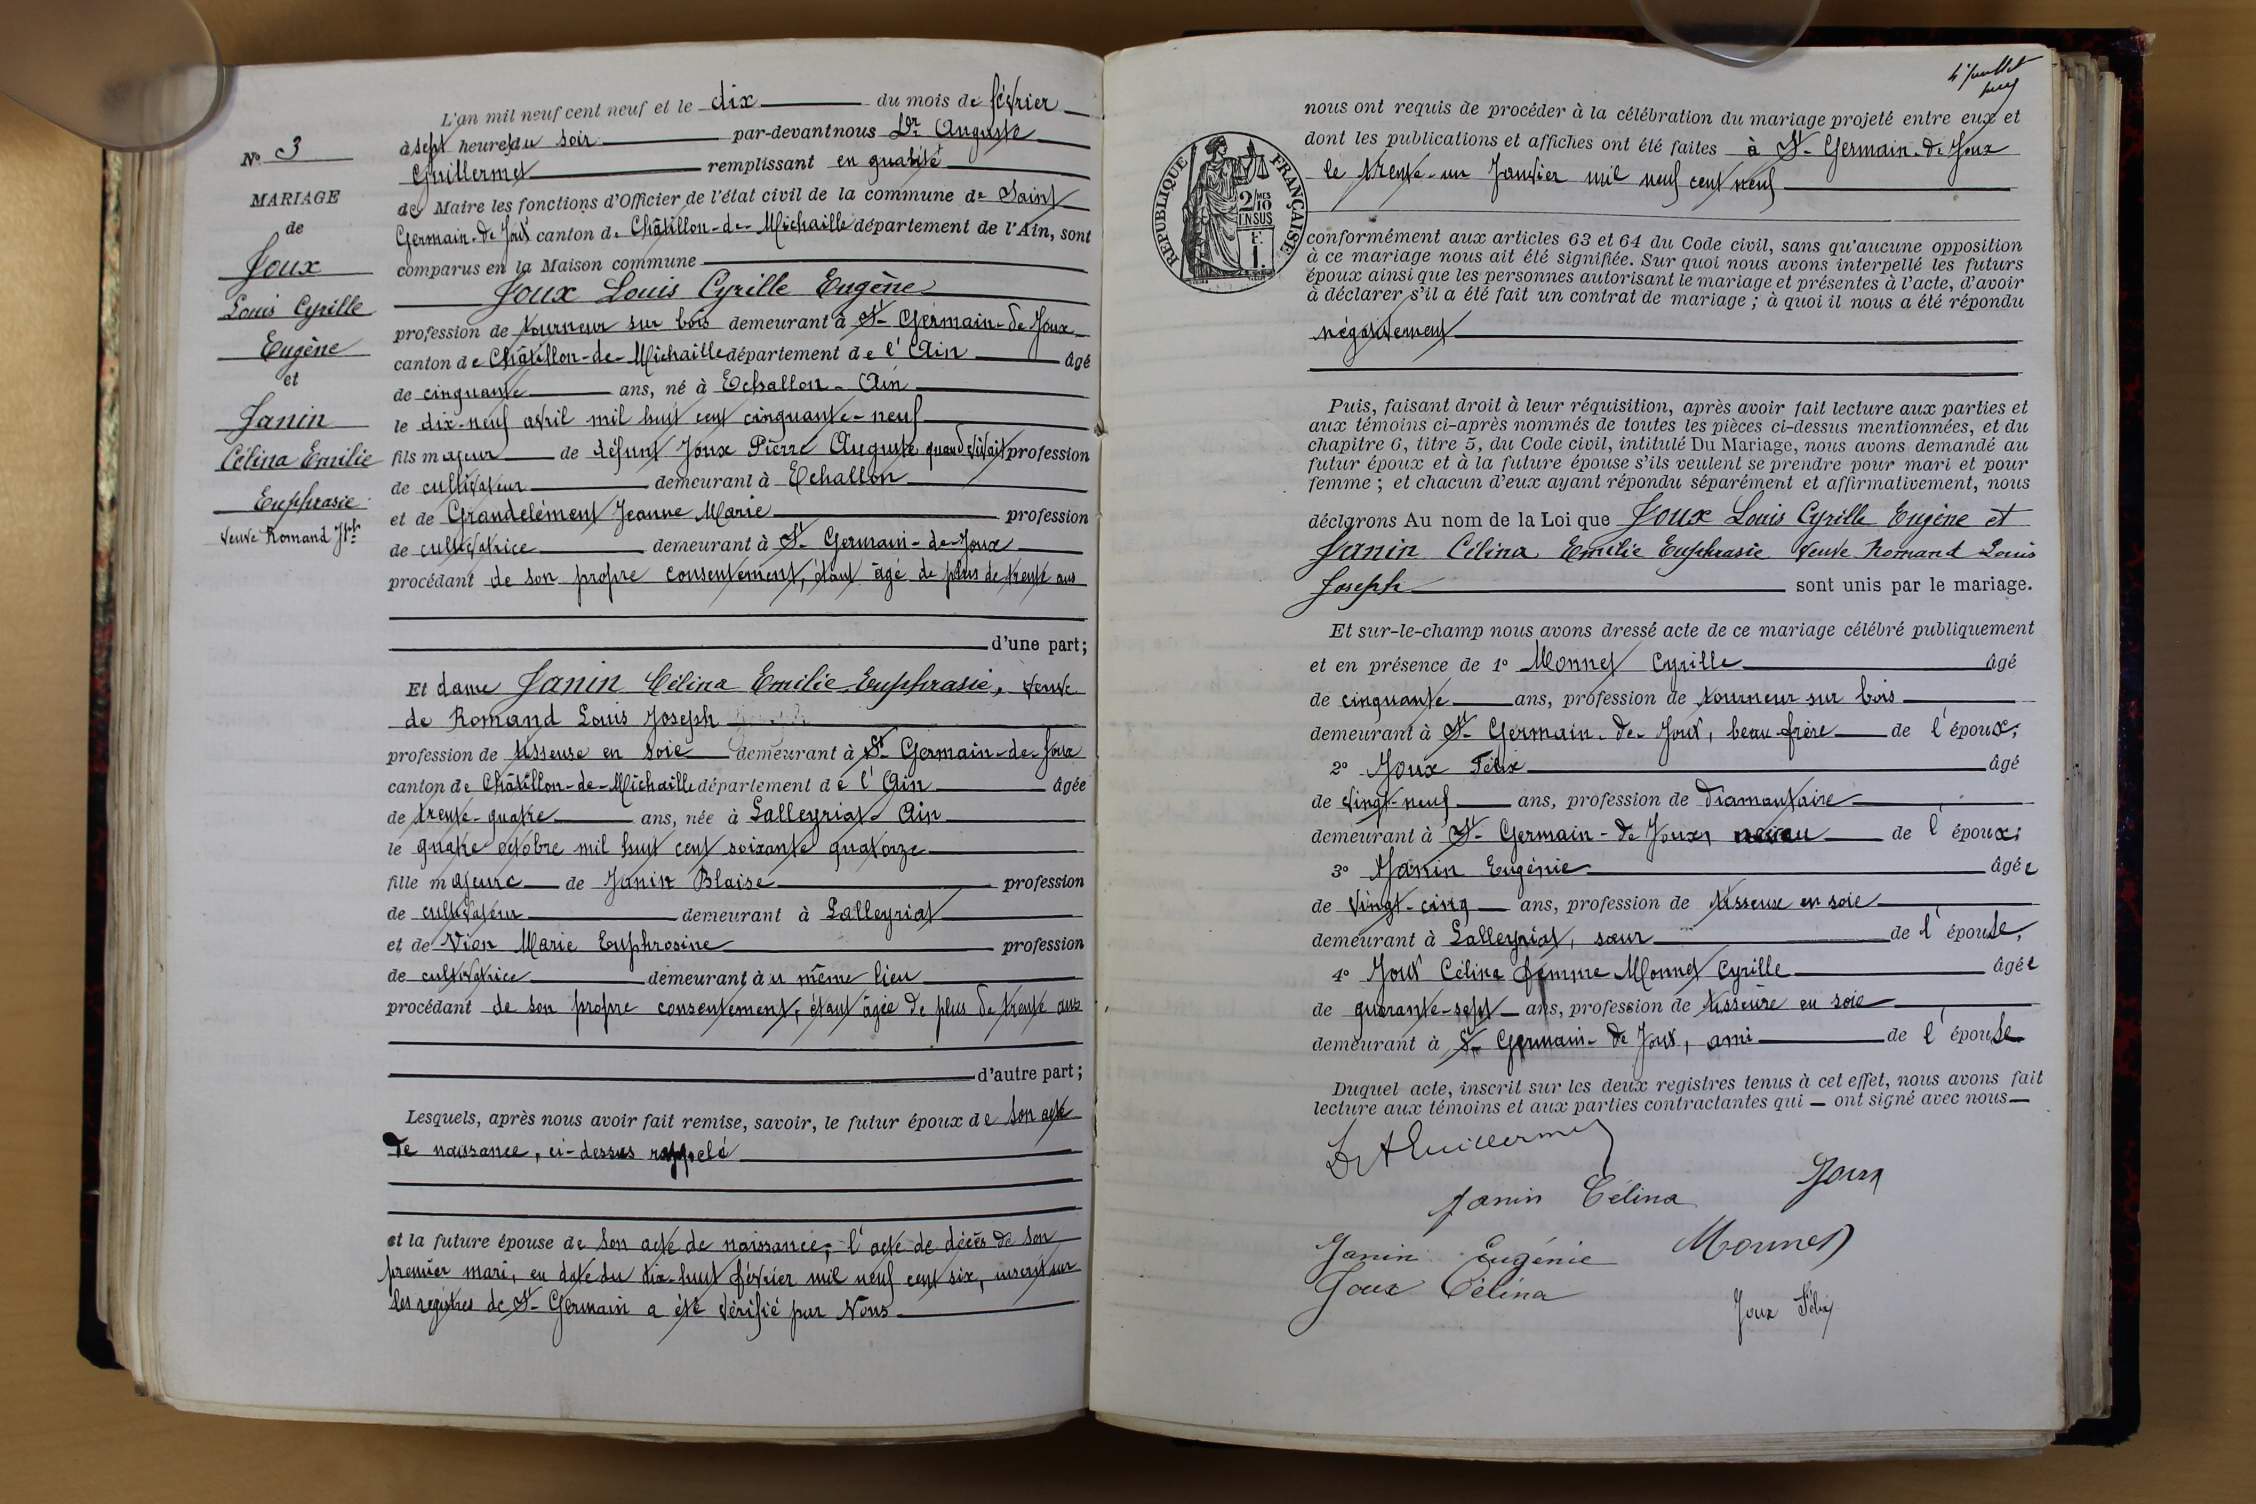 L'an mil neuf cent neuf et le dix du mois de février
à sept heures du soir par-devant nous Dr Auguste
Guillermet remplissant en qualité
de Maire les fonctions d'Officier de l'état civil de la commune de Saint
Germain-de-Joux canton de Châtillon-de-Michaille département de l'Ain, sont
comparus en la Maison commune
Joux Louis Cyrille Eugène
profession de tourneur sur bois demeurant à St Germain-de-Joux
canton de Châtillon-de-Michaille département de l'Ain âgé
de cinquante ans, né à Echallon - Ain
le dix-neuf avril mil huit cent cinquante-neuf
fils majeur de défunt Joux Pierre Auguste quand vivait profession
de cultivateur demeurant à Echallon
et de Grandclément Jeanne Marie profession
de cultivatrice demeurant à St Germain-de-Joux
procédant de son propre consentement, étant âgé de plus de trente ans
d'une part;
Et dame Janin Célina Emilie Euphrasie, veuve
de Romand Louis Joseph
profession de tisseuse en soie demeurant à St Germain-de-Joux
canton de Châtillon-de-Michaille département de l'Ain âgée
de trente-quatre ans, née à Lalleyriat - Ain
le quatre octobre mil huit cent soixante quatorze
fille majeure de Janin Blaise profession
de cultivateur demeurant à Lalleyriat
et de Vion Marie Euphrosine profession
de cultivatrice demeurant au même lieu
procédant de son propre consentement, étant âgée de plus de trente ans
d'autre part;
Lesquels, après nous avoir fait remise, savoir, le futur époux de son acte
de naissance, ci-dessus rappelé
et la future épouse de son acte de naissance; l'acte de décès de son
premier mari, en date du dix-huit février mil neuf cent six, inscrit sur
les registres de St Germain a été vérifié par Nous
No 3
MARIAGE
de
Joux
Louis Cyrille
Eugène
et
Janin
Célina Emilie
Euphrasie
veuve Romand Jph
4 juillet
nous ont requis de procéder à la célébration du mariage projeté entre eux et
dont les publications et affiches ont été faites à St Germain-de-Joux
le trente-un Janvier mil neuf cent neuf
RÉPUBLIQUE FRANÇAISE
2/10 MES
EN SUS
F.
1.
conformément aux articles 63 et 64 du Code civil, sans qu'aucune opposition
à ce mariage nous ait été signifiée. Sur quoi nous avons interpellé les futurs
époux ainsi que les personnes autorisant le mariage et présentes à l'acte, d'avoir
à déclarer s'il a été fait un contrat de mariage; à quoi il nous a été répondu
négativement
Puis, faisant droit à leur réquisition, après avoir fait lecture aux parties et
aux témoins ci-après nommés de toutes les pièces ci-dessus mentionnées, et du
chapitre 6, titre 5, du Code civil, intitulé Du Mariage, nous avons demandé au
futur époux et à la future épouse s'ils veulent se prendre pour mari et pour
femme; et chacun d'eux ayant répondu séparément et affirmativement, nous
déclarons Au nom de la Loi que Joux Louis Cyrille Eugène et
Janin Célina Emilie Euphrasie veuve Romand Louis
Joseph sont unis par le mariage.
Et sur-le-champ nous avons dressé acte de ce mariage célébré publiquement
et en présence de 1° Monnet Cyrille âgé
de cinquante ans, profession de tourneur sur bois
demeurant à St Germain-de-Joux, beau-frère de l'époux;
2° Joux Félix âgé
de vingt-neuf ans, profession de diamantaire
demeurant à St Germain-de-Joux, neveu de l'époux;
3° Janin Eugénie âgée
de vingt-cinq ans, profession de tisseuse en soie
demeurant à Lalleyriat, sœur de l'épouse,
4° Joux Célina femme Monnet Cyrille âgée
de quarante-sept ans, profession de tisseuse en soie
demeurant à St Germain-de Joux, ami de l'épouse
Duquel acte, inscrit sur les deux registres tenus à cet effet, nous avons fait
lecture aux témoins et aux parties contractantes qui — ont signé avec nous —
Dr A Guillermet
Joux
Janin Célina
Janin Eugénie
Monnet
Joux Célina
Joux Félix